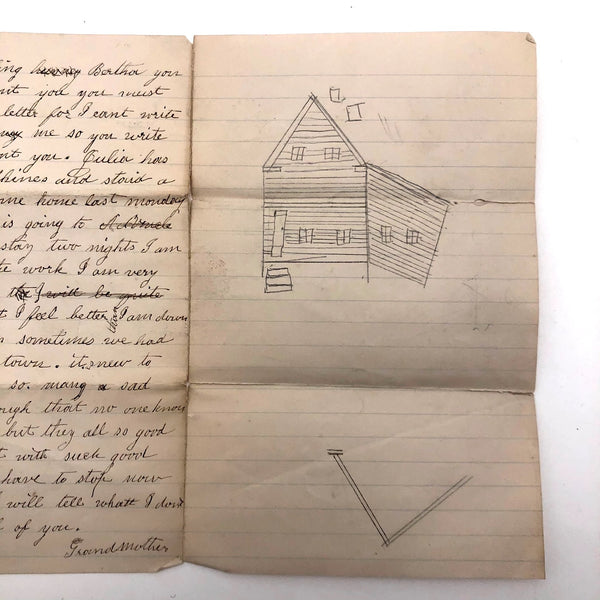 ing Bertha you
nt you you must
letter for I cant write
me so you write
nt you. Julia has
hines and staid a
me home last monday
is going to
stay two nights I am
te work I am very
I will be quite
t I feel better than I am down
n sometimes we had
town. it new to
so many a sad
ough that no one know
but they all so good
t with such good
have to stop now
will tell what I dont
l of you.
Grandmother